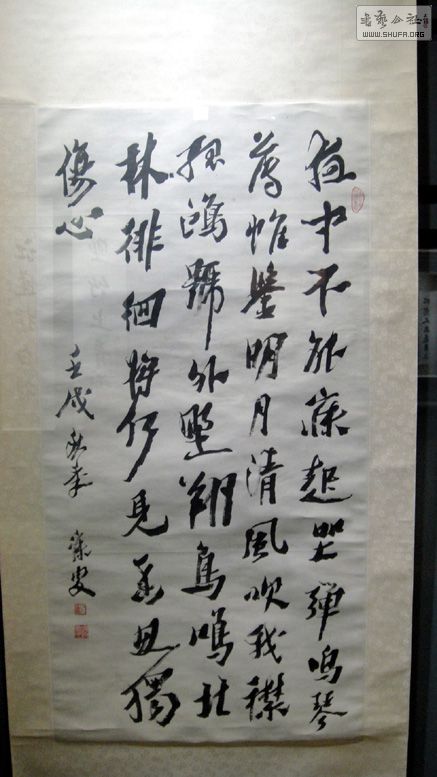 夜中不能寐起坐彈鳴琴
薄帷鑒明月清風吹我襟
孤鴻號外壄翔鳥鳴北
林徘徊將何見憂思獨
傷心
壬戌秋季 寐叟
書藝公社
WWW.SHUFA.ORG